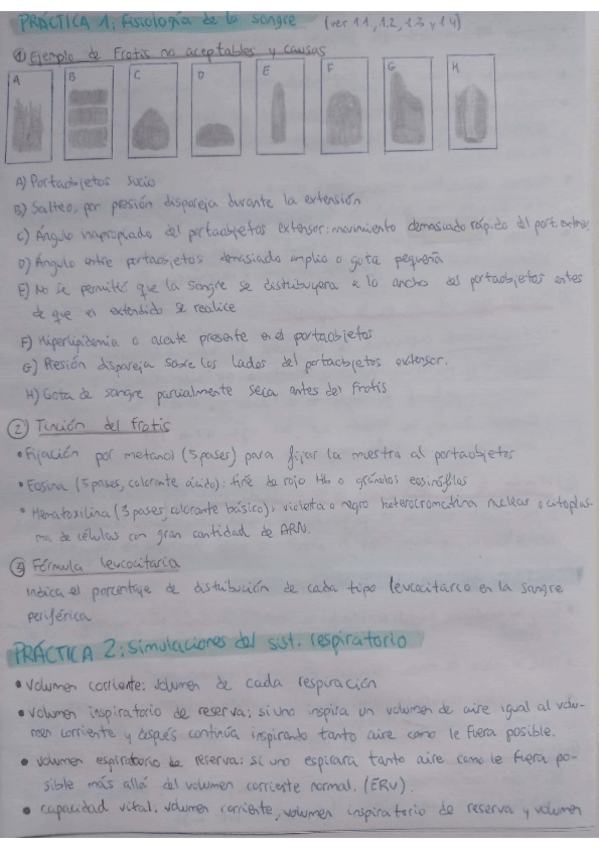 PRÁCTICA 1: Fisiología de la sangre (ver 1.1, 1.2, 1.3 y 1.4)
① Ejemplo de Frotis no aceptables y causas
A B C D E F G H
A) Portaobjetos sucio
B) Salteo, por presión dispareja durante la extensión
C) Ángulo inapropiado del portaobjetos extensor: movimiento demasiado rápido del port. extensor
D) Ángulo entre portaobjetos demasiado amplio o gota pequeña
E) No se permitió que la sangre se distribuyera a lo ancho del portaobjetos antes
de que el extendido se realice
F) Hiperlipidemia o aceite presente en el portaobjetos
G) Presión dispareja sobre los lados del portaobjetos extensor.
H) Gota de sangre parcialmente seca antes del frotis
② Tinción del frotis
• Fijación por metanol (5 pases) para fijar la muestra al portaobjetos
• Eosina (5 pases, colorante ácido): tiñe de rojo Hb o gránulos eosinófilos
• Hematoxilina (3 pases, colorante básico): violeta o negro heterocromatina nuclear o citoplas-
ma de células con gran cantidad de ARN.
③ Fórmula leucocitaria
Indica el porcentaje de distribución de cada tipo leucocitario en la sangre
periférica
PRÁCTICA 2: Simulaciones del sist. respiratorio
• Volumen corriente: volumen de cada respiración
• Volumen inspiratorio de reserva: si uno inspira un volumen de aire igual al volu-
men corriente y después continúa inspirando tanto aire como le fuera posible.
• Volumen espiratorio de reserva: si uno espirara tanto aire como le fuera po-
sible más allá del volumen corriente normal. (ERV).
• Capacidad vital: volumen corriente, volumen inspiratorio de reserva y volumen